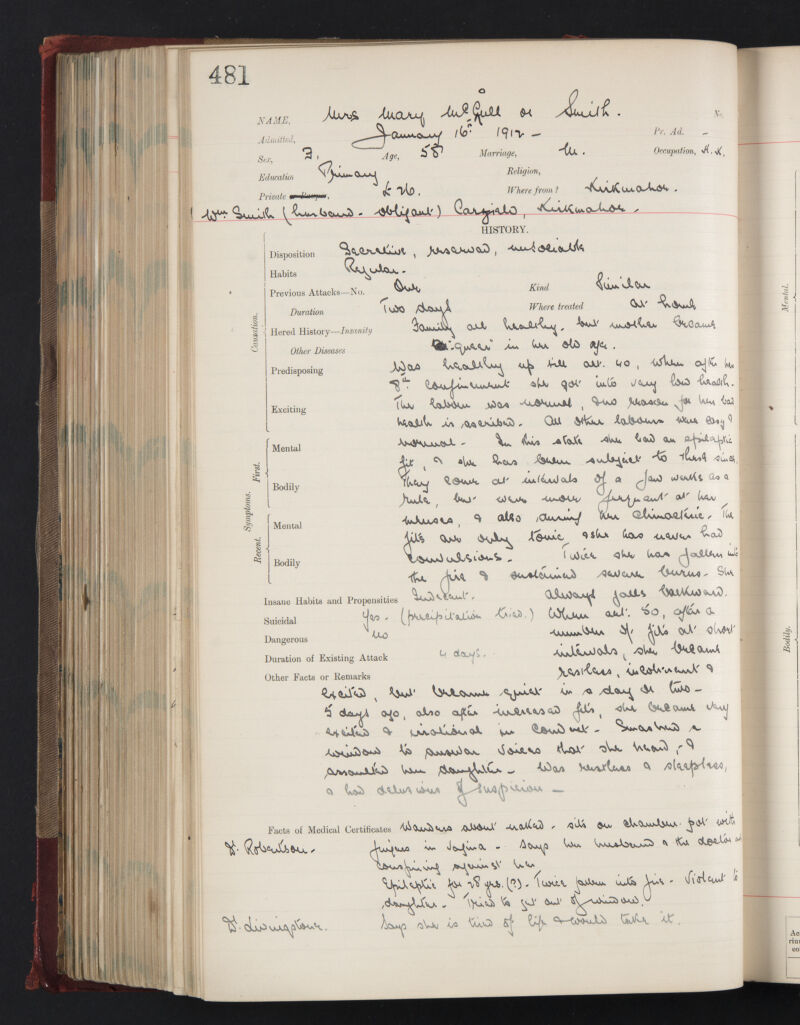 481
NAME, Mrs Mary McGill or Smith. No.
Admitted, January 16th 1912 - Pr. Ad. -
Sex, F. Age, 58 Marriage, M. Occupation, H.K.
Education Primary Religion,
Private or Pauper, £26. Where from? Kirkmahoe.
Wm. Smith (husband - obligant) Carzield, Kirkmahoe -
HISTORY.
Disposition Secretive, reserved, unsociable
Habits Regular.
Previous Attacks—No. One Kind Similar
Duration Two days Where treated at home
Hered History—Insanity Family all healthy. but mother became
Other Diseases "queer" in her old age.
Predisposing Was healthy up till aet. 40, when after her
8th confinement she got into very low health.
Exciting The labour was normal, & no reason for her bad
health is ascribed. All other labours were easy &
Mental normal - In this state she had an epileptic
fit, & she has been subject to these since.
Bodily They come at intervals of a few weeks as a
rule, but were more frequent at her
Mental menses, & also during her climacteric. The
fits are only tonic & she has never had
Bodily convulsions - Twice she has fallen into
the fire & sustained severe burns - She
Insane Habits and Propensities Indecent. always falls backward.
Suicidal Yes - (precipitation tried.) When aet. 50, after a
Dangerous no number of fits at short
Duration of Existing Attack 4 days. intervals, she became
Other Facts or Remarks restless, incoherent &
excited, but became quiet in a day or two -
5 days ago, also after increased fits, she became very
excited & irrational in conduct - Smashed a
window to answer voices that she heard, - &
assaulted her daughter - Was restless & sleepless,
& had delusions of suspicion -
Facts of Medical Certificates Wanders about naked - sits on chamber pot with
Dr. Robertson - fingers in vagina - Says her husband & the doctor are
conspiring against her
Epileptic for 28 yrs. (?) - Twice fallen into fire - Violent to
daughter - Tried to get out of window.
Dr. Livingstone. Says she is tired of life & would take it.
Causation.
Symptoms.
First.
Recent.
Mental.
Bodily.